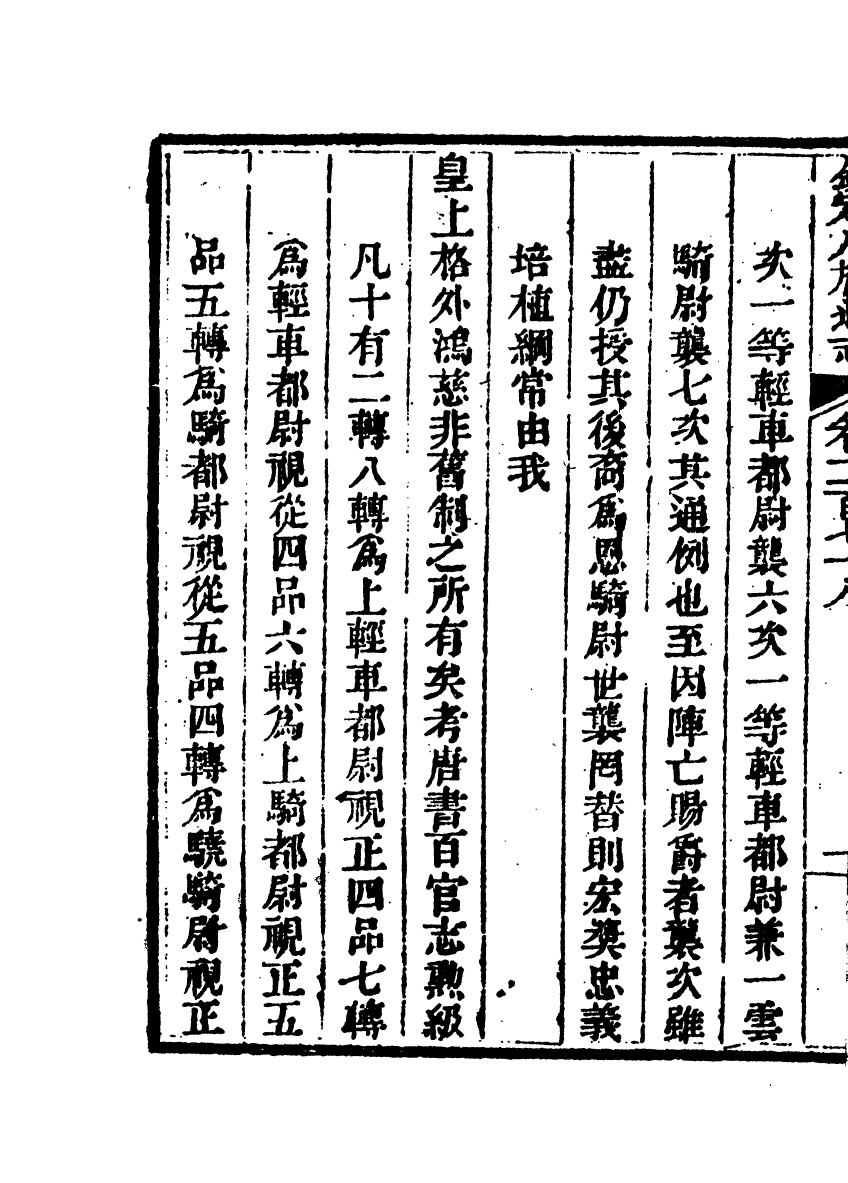 次一等輕車都尉襲六次一等輕車都尉兼一雲
騎尉襲七次其通例也至因陣亡賜爵者襲次雖
盡仍授其後裔爲恩騎尉世襲罔替則宏奬忠義
培植綱常由我
皇上格外鴻慈非舊制之所有矣考唐書百官志勲級
凡十有二轉八轉爲上輕車都尉視正四品七轉
爲輕車都尉視從四品六轉爲上騎都尉視正五
品五轉爲騎都尉視從五品四轉爲驍騎尉視正